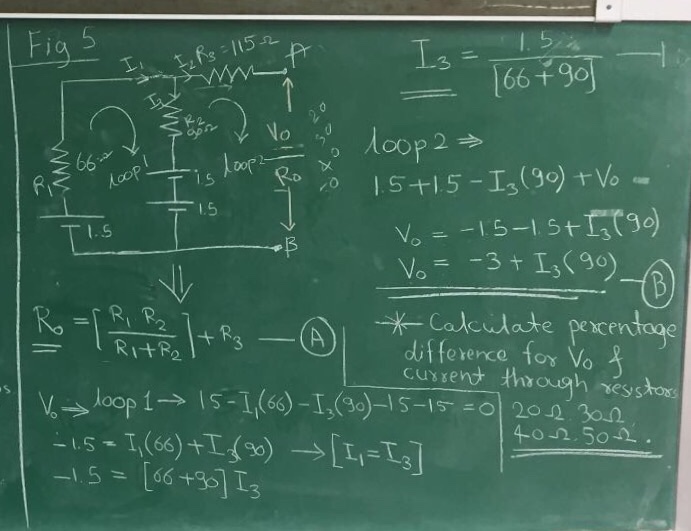 Fig 5
I₁
I₂ R₃ = 115Ω
A
I₃
R₂
90Ω
R₁
66Ω
loop 1
loop 2
1.5
1.5
1.5
V₀
R₀
B
20
30
R₀ = [R₁ R₂ / R₁+R₂] + R₃ — (A)
V₀ ⇒ loop 1 → 1.5 - I₁(66) - I₃(90) - 1.5 - 1.5 = 0
-1.5 = I₁(66) + I₃(90) → [I₁ = I₃]
-1.5 = [66+90] I₃
I₃ = 1.5 / [66+90]
loop 2 ⇒
1.5 + 1.5 - I₃(90) + V₀ =
V₀ = -1.5 - 1.5 + I₃(90)
V₀ = -3 + I₃(90) — (B)
* Calculate percentage
difference for V₀ &
current through resistors
20Ω 30Ω
40Ω 50Ω.